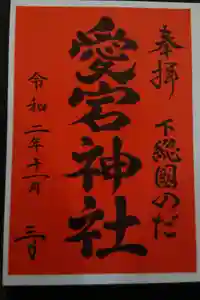 奉拝
下総國のだ
愛宕神社
令和二年十一月
三日